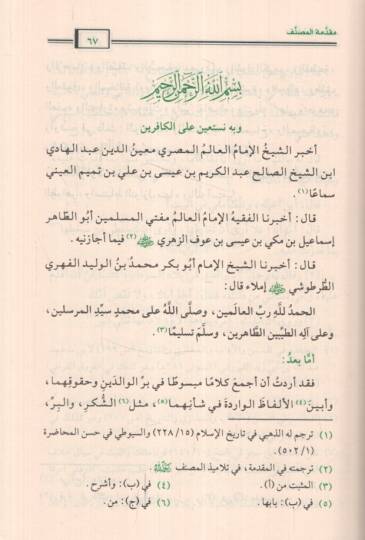 مقدّمة المصنّف
٦٧
بِسْمِ اللَّهِ الرَّحْمَنِ الرَّحِيمِ
وبه نستعين على الكافرين
أخبر الشيخُ الإمامُ العالمُ المصري معينُ الدين عبد الهادي
ابن الشيخ الصالح عبد الكريم بن عيسى بن علي بن تميم العيني
سماعًا(١).
قال: أخبرنا الفقيهُ الإمامُ العالمُ مفتي المسلمين أبُو الطَّاهر
إسماعيل بن مكي بن عيسى بن عوف الزهري ﵁(٢) فيما أجازنيه.
قال: أخبرنا الشيخ الإمام أبو بكر محمدُ بنُ الوليد الفهري
الطُّرطوشي ﵁ إملاء قال:
الحمدُ للَّهِ ربِّ العالَمين، وصلَّى اللَّهُ على محمدٍ سيِّدِ المرسلين،
وعلى آله الطيِّبين الطَّاهرين، وسلَّمَ تسليمًا(٣).
أمَّا بعدُ:
فقد أردتُ أن أجمعَ كلامًا مبسوطًا في برِّ الوالدَينِ وحقوقِهما،
وأبينَ(٤) الألفاظَ الواردةَ في شأنِهما(٥)، مثل(٦) الشُّكرِ، والبِرِّ،
(١) ترجم له الذهبي في تاريخ الإسلام (١٥/ ٢٢٨) والسيوطي في حسن المحاضرة
(١/ ٥٠٢).
(٢) ترجمته في المقدمة، في تلاميذ المصنف ﵀.
(٣) المثبت من (أ).
(٤) في (ب): وأشرح.
(٥) في (ب): بابها.
(٦) في (ج): من.